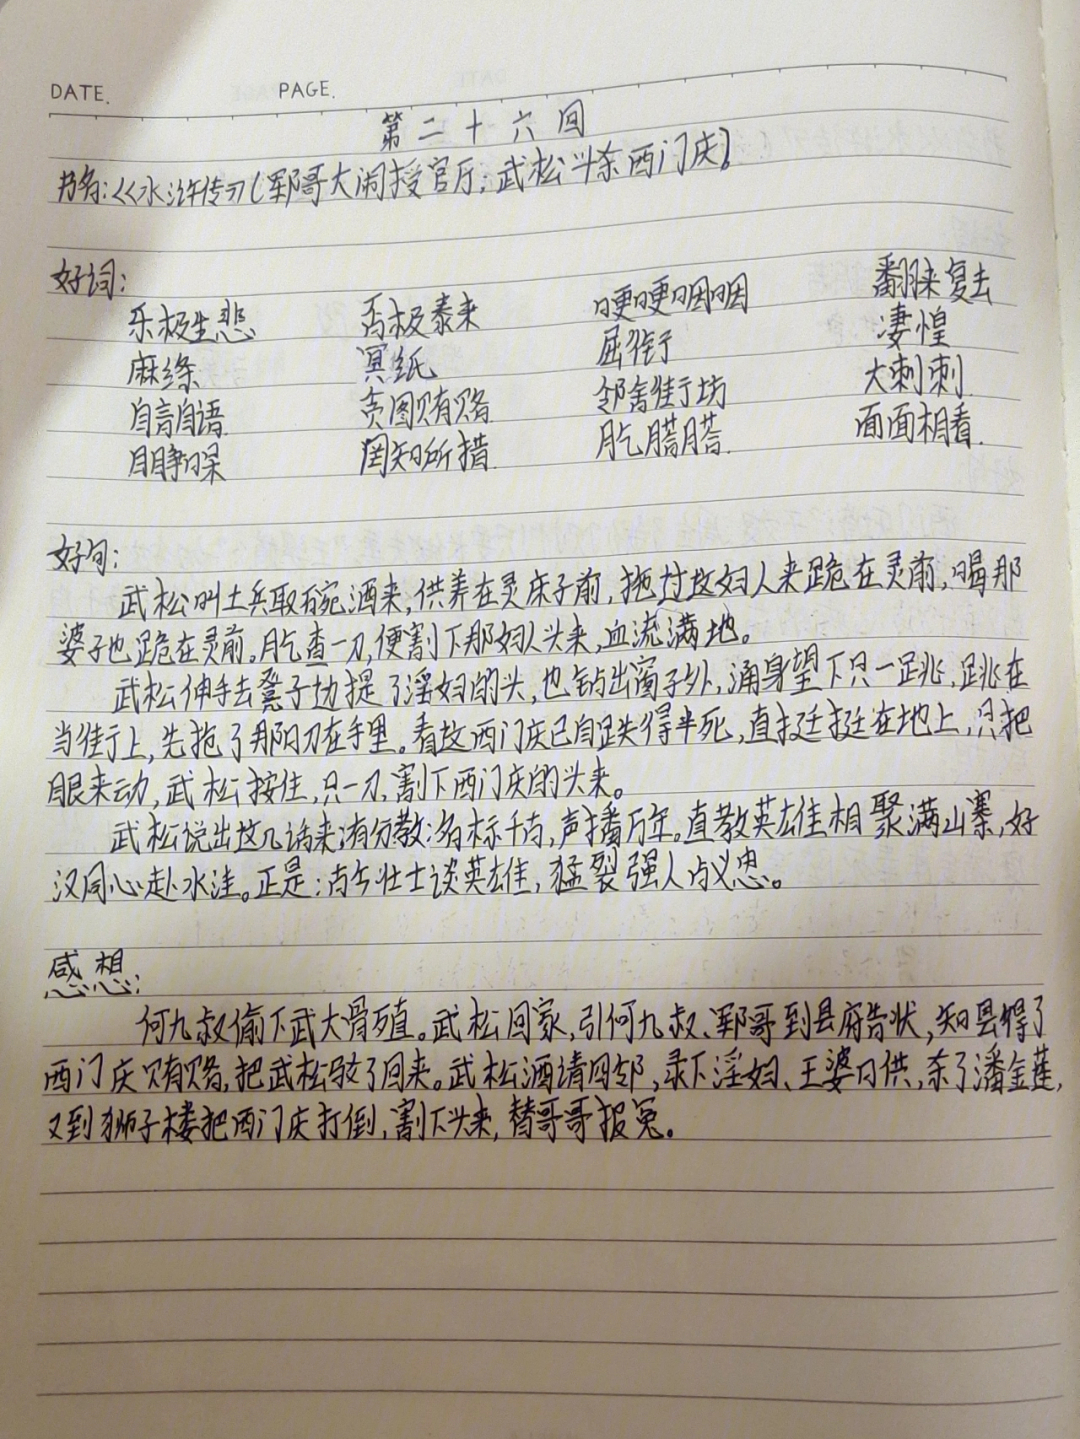 DATE. PAGE.
第二十六回
书名:《水浒传》(郓哥大闹授官厅;武松斗杀西门庆)
好词:
乐极生悲 否极泰来 哽哽咽咽 翻来复去
麻绦 冥纸 屈衔 凄惶
自言自语 贪图贿赂 邻舍街坊 大刺刺
罔知所措 面面相看.
好句:
武松叫土兵取碗酒来,供养在灵床子前,拖过这妇人来跪在灵前,喝那
婆子也跪在灵前。肐查一刀,便割下那妇人头来,血流满地。
武松伸手去凳子边提了淫妇的头,也钻出窗子外,涌身望下只一跳,跳在
当街上,先抢了那口刀在手里。看这西门庆已自跌得半死,直挺挺在地上,只把
眼来动,武松按住,只一刀,割下西门庆的头来。
武松说出这几话来,有分教:名标千古,声播万年。直教英雄相聚满山寨,好
汉同心赴水洼。正是:古今壮士谈英雄,猛裂强人占义忠。
感想:
何九叔偷下武大骨殖。武松回家,引何九叔、郓哥到县府告状,知县得了
西门庆贿赂,把武松驳了回来。武松酒请四邻,录下淫妇、王婆口供,杀了潘金莲,
又到狮子楼把西门庆打倒,割下头来,替哥哥报冤。